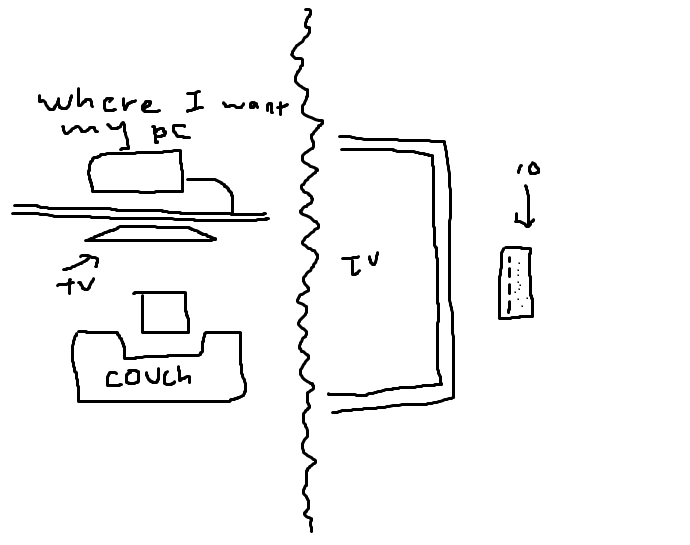 where I want
my pc
TV
COUCH
TV
io